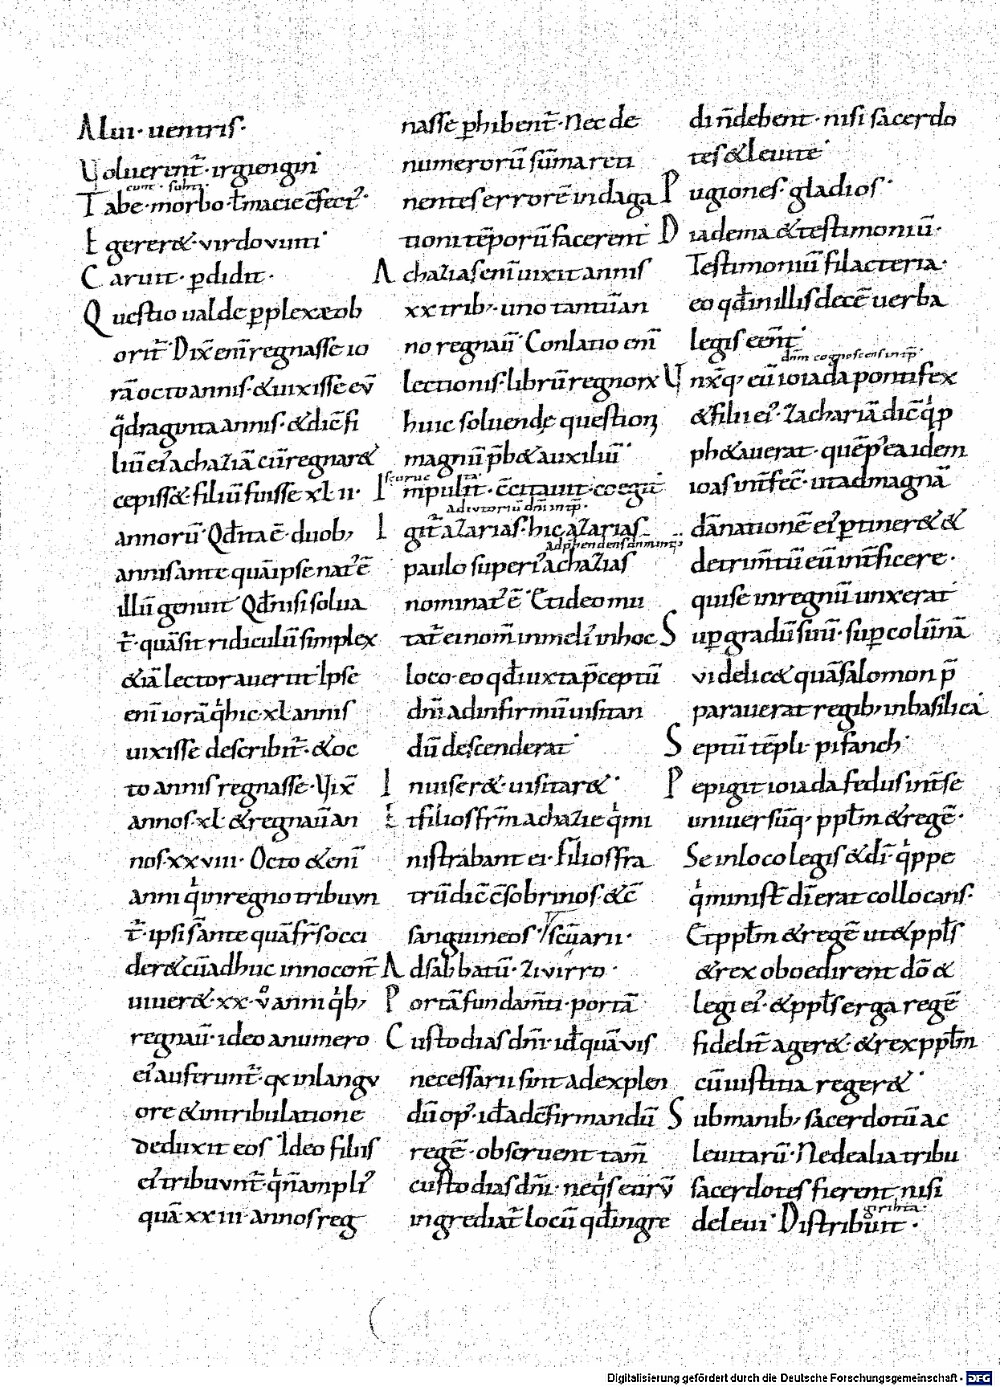 Alui · uentris ·
Uoluerent̄ · irgiengin
cunt · subiti ·
Tabe · morbo ł macie c̄fect᾽ ·
Egerer& · virdovuiti
Caruit · p̱didit ·
Questio ualde p̱plexa ob
orit̄ Dix̄ enī regnasse io
rā octo annis · & uixisse eū
q̈draginta annis · & dic̄ fi
liū ei᾽ achaziā cū regnar&
cepiss& filiū fuisse xl ii ·
annorū Qd̄ ita ē · duob;
annis ante quā ipse nat᾽ ē
illū genuit Qd̄ nisi solua
t̄ · quā sit ridiculū simplex
& iā lector auertit Ipse
enī iorā q̇ hic · xl annis
uixisse describit̄ · & oc
to annis regnasse · Uix̄
annos · xl · & regnaū an
nos · xx viii · Octo & enī
anni q̇ in regno tribuun
t̄ · ipsi s̄ ante quā fr̄s occi
der& cū adhuc innocent̄
uiuer& · xx · v̊ anni q̇b;
regnaū · ideo a numero
ei᾽ auferunt̄ · qx in langu
ore & in tribulatione
deduxit eos Ideo filiis
ei᾽ tribuunt̄ · q̇ n̄ ampli᾽
quā xx iii · annos reg
nasse p̱hibent̄ · Nec de
numerorū sūma reti
nentes errorē in daga
tioni tēporū facerent
Achazias enī uixit annis
xx trib; · uno tantū an
no regnaū Conlatio enī
lectionis · librū regnorx
huic soluendę question
magnū p̄b& auxiliū
Impulit · c̄citauit · coegit ·
adiutoriū dn̄i int̄p̄ ·
Igit̄ azarias · hic azarias
adp̱hendens dn̄m int̄p̄
paulo superi᾽ achazias
nominat᾽ ē Et ideo mu
tat̄ ei nom̄ in meli᾽ in hoc
loco · eo qd̄ iuxta p̄ceptū
dn̄i ad infirmū uisitan
dū descenderat
Inuiser& · uisitar& ·
Et filios fr̄m achazie q̇ mi
nistrabant ei · Filios fra
trū dic̄ c̄sobrinos · & c̄
sanguineos · / scuarii ·
Ad sabbatū · zi virro ·
Portā fundam̄ti · portā
Custodias dn̄i · id̄ quā vis
necessarii sint ad explen
dū op᾽ · id̄ ad c̄firmandū
regē · obseruent tam̄
custodias dn̄i · neq̇s eorū
ingrediat̄ locū qd̄ ingre
di n̄ debent · nisi sacerdo
tes & leuite
Pugiones · gladios ·
Diadema & testimoniū ·
Testimoniū filacteria ·
eo qd̄ in illis decē uerba
legis eēnt
dn̄m cognoscens int̄p̄ ·
Unx̄q; eū ioiada pontifex
& filii ei᾽ · Zachariā dic̄ q̇ p
ph&auerat · quē p᾽ ea idem
ioas int̄fec̄ · ut ad magnā
dānationē ei᾽ p̱tiner& &
detrim̄tū eū int̄ficere ·
qui se in regnū unxerat
Sup̱ gradū suū · sup̱ colūnā
videlic& quā salomon p̄
parauerat regib; in basilica
Septū tēpli · pifanch
Pepigit ioiada fedus int̄ se
uniuersūq · pplm̄ & regē ·
Se in loco legis & di · q̇ppe
q̇ minist̄ di erat collocans ·
Et pplm̄ & regē ut & ppl̄s
& rex oboedirent dō &
legi ei᾽ · & ppl̄s erga regē
fidelit̄ ager& · & rex pplm̄
cū iustitia reger&
Sub manib; sacerdotū ac
leuitarū · Ne de alia tribu
sacerdotes fierent nisi
de leui Distribuit ·